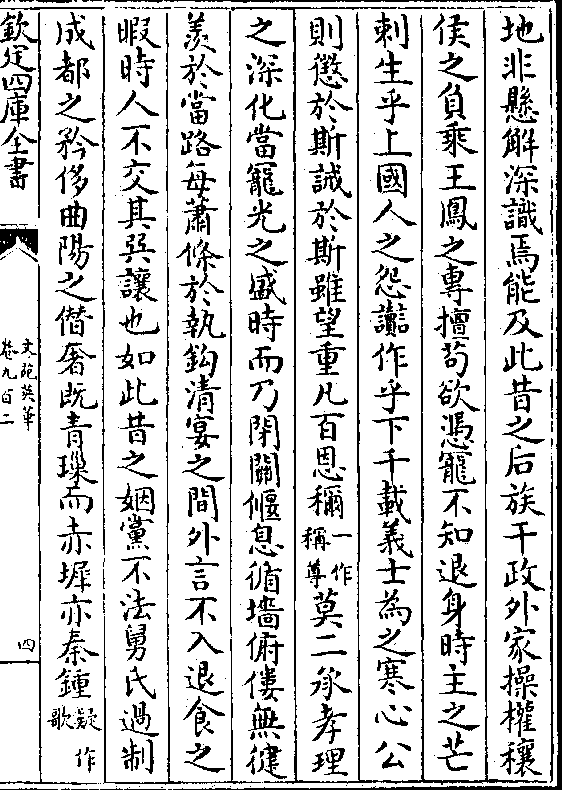 地非懸解深識焉能及此昔之后族干政外家操權穰
侯之負乗王鳳之專擅苟欲憑寵不知退身時主之芒
刺生乎上國人之怨讟作乎下千載義士為之寒心公
則懲於斯誡於斯雖望重凡百恩稱一作稱尊莫二承孝理
之深化當寵光之盛時而乃閉關偃息循墻俯僂無健
羡於當路每蕭條於執鈎清宴之間外言不入退食之
暇時人不交其㢲讓也如此昔之姻黨不法舅氏過制
成都之矜侈曲陽之僭奢既青璅而赤墀亦秦鍾疑作歌
欽定四庫全書
文苑英華
卷九百二
四